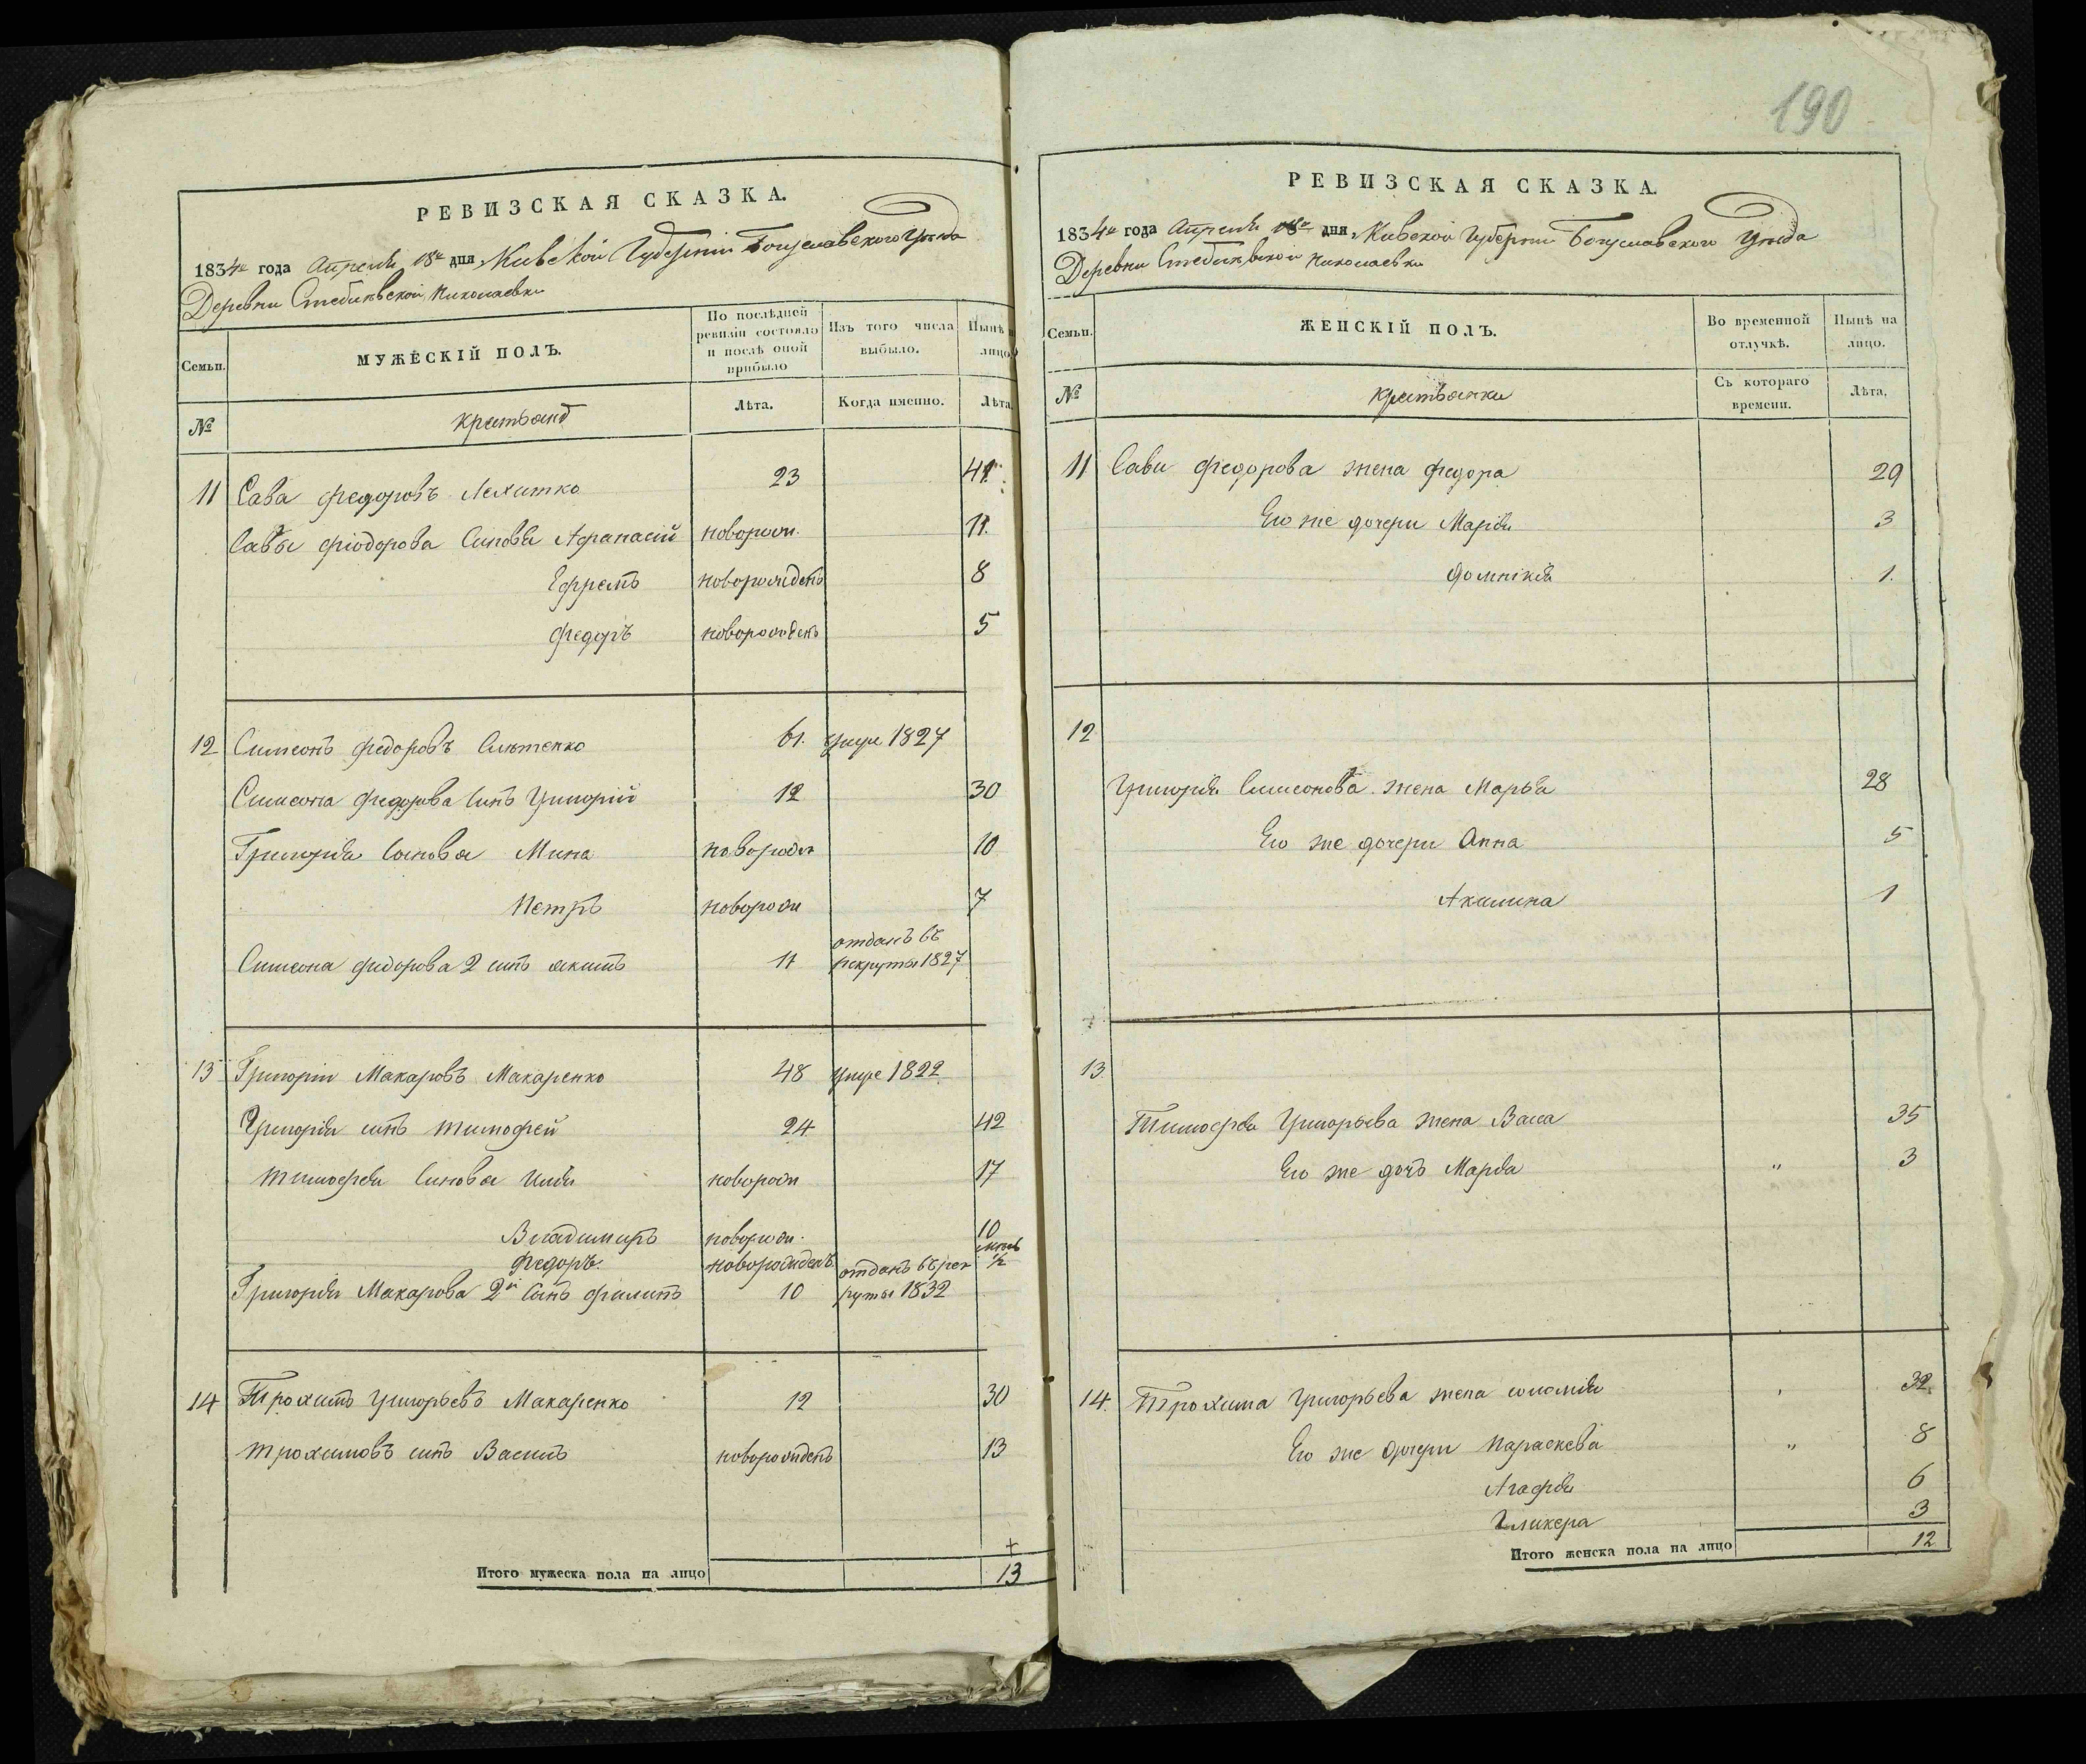 РЕВИЗСКАЯ СКАЗКА.
1834го года Апреля 18го дня, Киевской Губернии Богуславского Уезда
Деревни Стеблевской Николаевки
Семьи.
МУЖЕСКІЙ ПОЛЪ.
По послѣдней ревизіи состояло и послѣ оной прибыло
Изъ того числа выбыло.
Нынѣ на лицо
№
крестьянъ
Лѣта.
Когда именно.
Лѣта.
11 Сава Федоровъ 23 41
Савы Фіодорова Синовя Афанасій новорож. 11.
Ефремъ новорожденъ 8
Федоръ новорожденъ 5
12 Симеонъ Федоровъ 61. умре 1827
Симеона Федорова Синъ Григорій 12 30
Григорія Синовя Мина новорож 10
Петръ новорож 7
отданъ въ
Симеона Федорова 2 синъ якимъ 11 рекруты 1827
13 Григорій Макаровъ Макаренко 48 умре 1822
Григорія синъ тимофей 24 42
тимофея Синовя Илія новорож 17
Владимиръ новорож. 10
Федоръ. новорожденъ 1/2
отданъ въ рек
Григорія Макарова 2й Синъ филипъ 10 руты 1832
14 Трохимъ Григорьевъ Макаренко 12 30
трохимовъ синъ Василь новорожденъ 13
Итого мужеска пола на лицо 13
190
РЕВИЗСКАЯ СКАЗКА.
1834го года Апреля 18го дня, Киевской Губернии Богуславского Уезда
Деревни Стеблевской Николаевки
Семьи.
ЖЕНСКІЙ ПОЛЪ.
Во временной отлучкѣ.
Нынѣ на лицо.
№
крестьянки
Съ котораго времени.
Лѣта.
11 Сави Федорова жена Федора 29
Его же дочери Марія 3
Домникія 1.
12
Григорія Симеонова жена Марья 28
Его же дочери Анна 5
Акилина 1
13.
Тимофея Григорьева жена Васса 35
Его же дочь Марья " 3
14. Трохима Григорьева жена соломія 32.
Его же дочери Параскева " 8
Агафія 6
Гликера 3
Итого женска пола на лицо 12